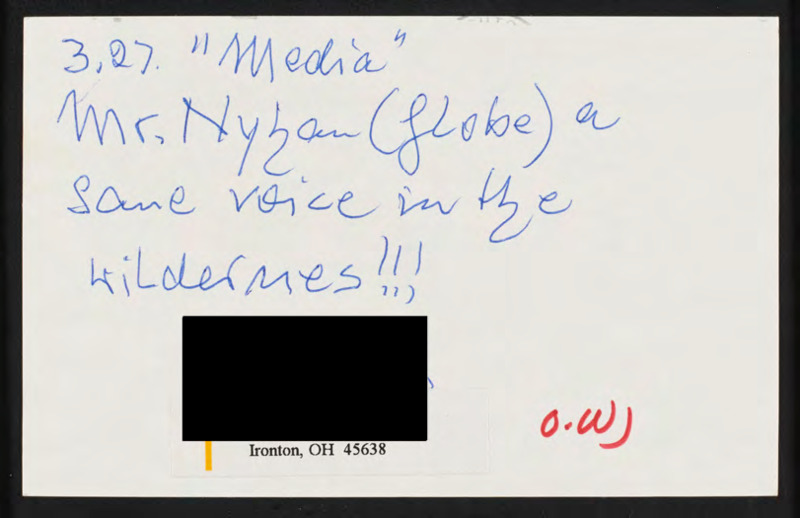 3.27. "Media"
Mr. Nyhan (Globe) a
sane voice in the
wildernes!!!
Ironton, OH 45638
O.W)